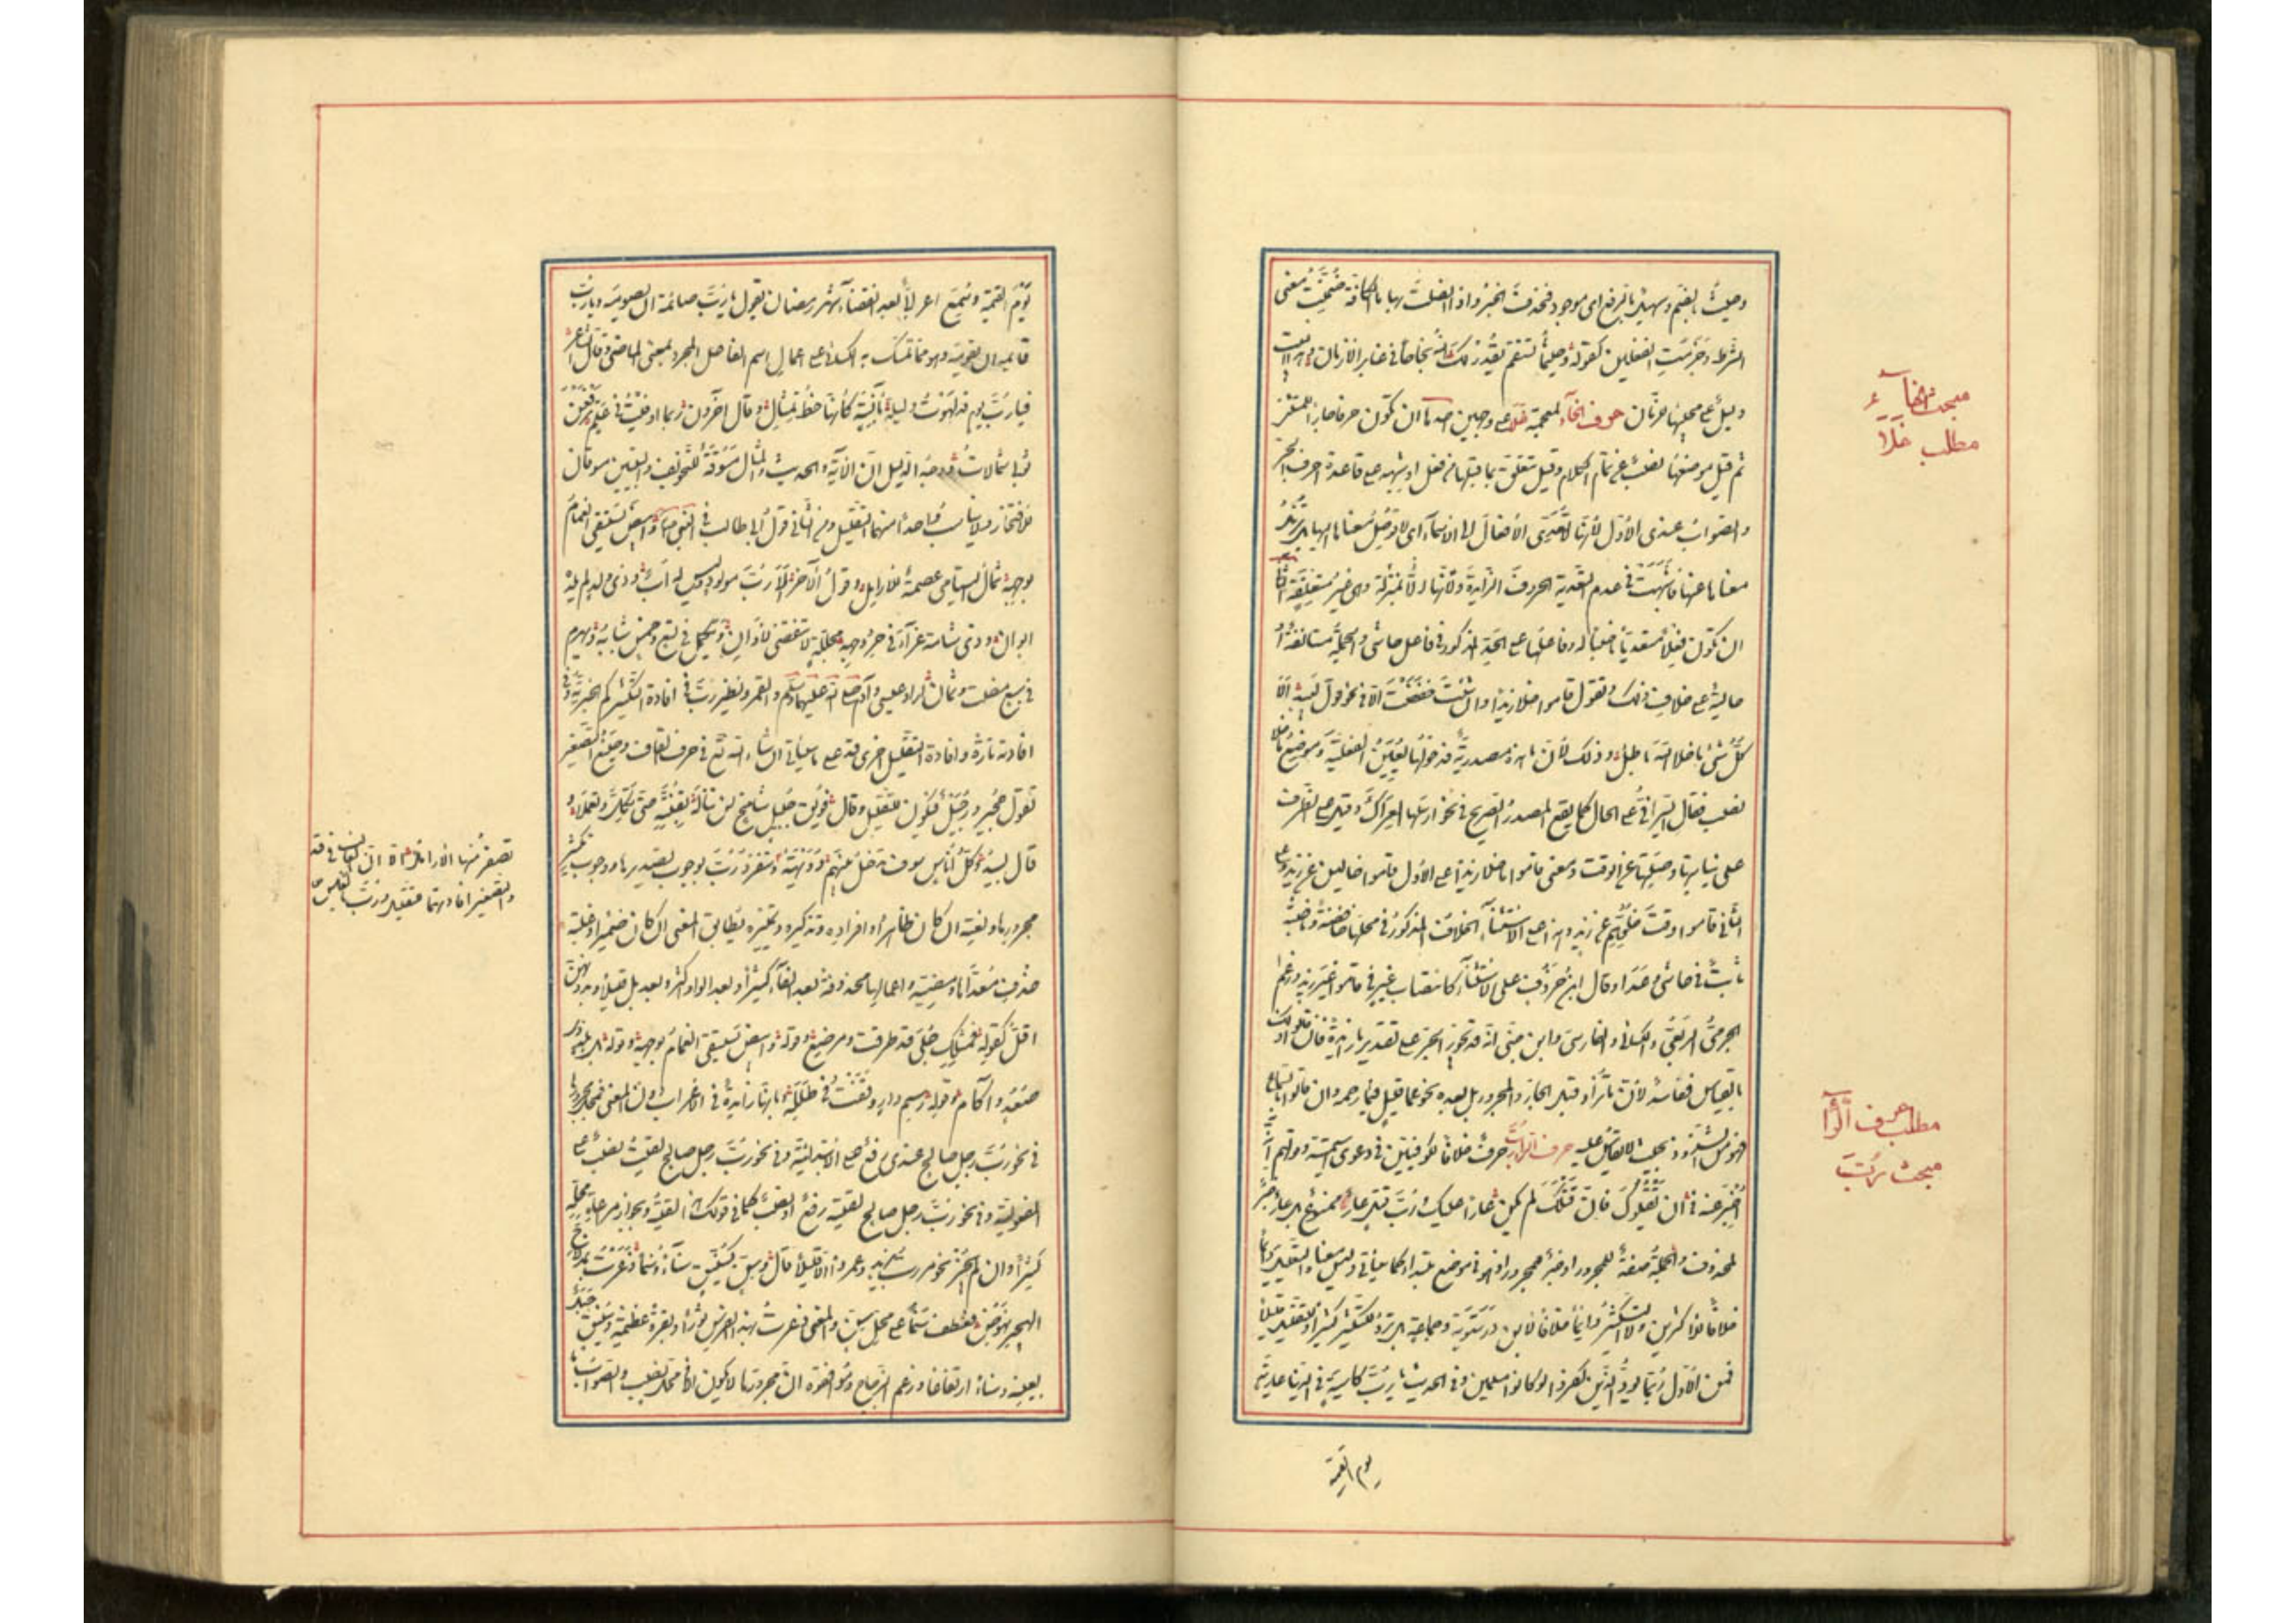 وحيثُ بالضم وسهيل بالرفع اى موجود فحذفت الخبر واذا اتصلت بها ما الكافة ضمنت معنى
الشرط وجزمت الفعلين كقوله حيثما تستقم يقدر لك الله نجاحا فى غابر الازمان وهذا البيت
دليل على مجيئها للزمان حرف الخآء المعجمة خلا على وجهين احدهما ان تكون حرفا جارا للمستثنى
ثم قيل موضعها نصب عن تمام الكلام وقيل تتعلق بما قبلها من فعل او شبهه على قاعدة احرف الجر
والصواب عندى الاول لانها لا تعدى الافعال الى الاسمآء اى لا توصل معناها اليها بل تزيل
معناها عنها فاشبهت فى عدم التعدية الحروف الزايدة ولانها بمنزلة وهى غير متعلقة
ان تكون فعلا متعديا ناصبا له وفاعلها على الحد المذكور فى فاعل حاشى والجملة مستانفة او
حالية على خلاف فى ذلك وتقول قاموا خلا زيدا وان شئت خفضت الا فى نحو قول لبيد الا
كل شئ ما خلا الله باطل وذلك لان ما هذه مصدرية فدخولها يعين الفعلية وموضع ما خلا
نصب فقال السيرافى على الحال كما يقع المصدر الصريح فى نحو ارسلها العراك وقيل على الظرف
على نيابتها وصلتها عن الوقت ومعنى قاموا ما خلا زيدا على الاول قاموا خالين عن زيد وعلى
الثانى قاموا وقت خلوهم عن زيد وهذا على الاستثنآء الخلاف المذكور فى محلها خافضة وناصبة
ثابت فى حاشى وعدا وقال ابن خروف على الاستثنآء كانتصاب غير فى قاموا غير زيد وزعم
الجرمى الربعى والكسائى والفارسى وابن جنى انه قد يجوز الجر على تقدير ما زايدة فان قالوا ذلك
بالقياس ففاسد لان ما تزاد قبل الجار والمجرور بل بعده نحو عما قليل فبما رحمة وان قالوا بالسماع
فهو من الشذوذ بحيث لا يقاس عليه حرف الرآء رب حرف خلافا للكوفيين فى دعوى اسميته وقولهم انه
اخبر عنه فى ان يقتلوك فان قتلك لم يكن عارا عليك ورب قتل عار ممنوع بل عار خبر
لمحذوف والجملة صفة للمجرور او خبر للمجرور اذ هو فى موضع مبتدا كما سيأتى وليس معناها التقليل دائما
خلافا للاكثرين ولا التكثير دائما خلافا لابن درستويه وجماعة بل ترد للتكثير كثيرا وللتقليل قليلا
فمن الاول ربما يود الذين كفروا لو كانوا مسلمين وفى الحديث يا رب كاسية فى الدنيا عارية
يوم القيمة
مبحث الخآء
مطلب خلا
مطلب حرف الرآ
مبحث رُبّ
يوم القيمة وسمع اعرابى بعد انقضآء شهر رمضان يقول يا رب صائمه لن يصومه ويا رب
قائمه لن يقومه وهو مما تمسك به الكسائى على اعمال اسم الفاعل المجرد بمعنى الماضى وقال الشاعر
فيا رب يوم قد لهوت وليلة بآنسة كأنها خط تمثال وقال اخر ربما اوفيت فى علم ترفعن
ثوبى شمالات ووجه الدليل ان الآية والحديث والمثال مسوقة للتخويف والبيتين مسوقان
للافتخار ولا يناسب واحدا منهما التقليل ومن الثانى قول ابى طالب فى النبى وابيض يستسقى الغمام
بوجهه ثمال اليتامى عصمة للارامل وقول الآخر الا رب مولود وليس له اب وذى ولد لم يلده
ابوان وذى شامة غرآء فى حر وجهه مجللة لا تنقضى لاوان ويكمل فى تسع وخمس شبابه ويهرم
فى سبع معا وثمان اراد عيسى وآدم عليهما السلام والقمر ونظير رب فى افادة التكثير كم الخبرية وفى
افادته تارة وافادة التقليل اخرى قد على ما سيأتى ان شاء الله تعالى فى حرف القاف وصيغ التصغير
تقول حجير ورجيل فتكون للتقليل وقال فويق جبيل شامخ لن تناله بقنته حتى تكل وتعملا و
قال لبيد وكل اناس سوف تدخل بينهم دويهية وتنفرد رب بوجوب تصديرها ووجوب تنكير
مجرورها ونعته ان كان ظاهرا وافراده وتذكيره وتمييزه بما يطابق المعنى ان كان ضميرا وغلبة
حذف معداها ومضيه واعمالها محذوفة بعد الفآء كثيرا وبعد الواو اكثر وبعد بل قليلا وبدونهن
اقل كقوله فمثلك حبلى قد طرقت ومرضع وقوله وابيض يستسقى الغمام بوجهه وقوله بل بلد ذى
صعد وآكام وقوله رسم دار وقفت فى طلله وبانها زايدة فى الاعراب دون المعنى فمحل مجرورها
فى نحو رب رجل صالح عندى رفع على الابتدائية وفى نحو رب رجل صالح لقيت نصب على
المفعولية وفى نحو رب رجل صالح لقيته رفع او نصب كما فى قولك هذا لقيته ويجوز مراعاة محله
كثيرا وان لم يجز نحو مررت بزيد وعمروا الا قليلا قال وسن كسنيق سناء وسنما ذعرت بمدلاج
الهجير نهوض فعطف سنما على محل سن والمعنى ذعرت بهذا الفرس ثورا وبقرة عظيمة وسنيق جبل
بعينه وسناء ارتفاعا وزعم الزجاج وموافقوه ان مجرورها لا يكون الا فى محل نصب والصواب ما